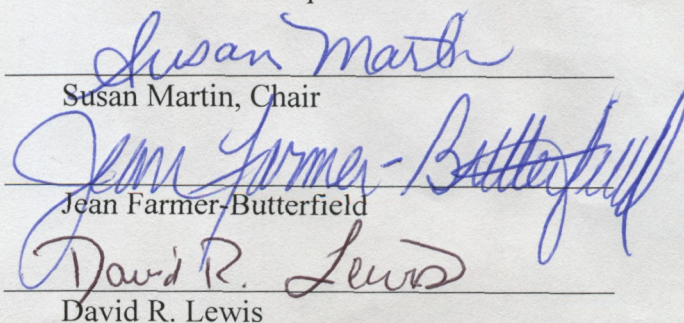 Susan Martin
Susan Martin, Chair
Jean Farmer-Butterfield
Jean Farmer-Butterfield
David R. Lewis
David R. Lewis